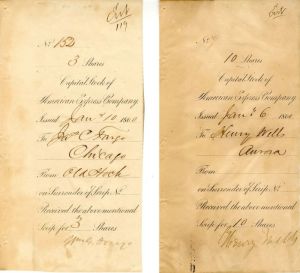 119
No. 152
3 Shares
Capital Stock of
American Express Company
Issued Jany 10 1860
To Jas C Fargo
Chicago
From Old Stock
on Surrender of Scrip No.
Received the above mentioned
Scrip for 3 Shares
10 Shares
Capital Stock of
American Express Company
Issued Jany 6 1860
To Henry Wells
Aurora
From
on Surrender of Scrip No.
Received the above mentioned
Scrip for 10 Shares
Henry Wells